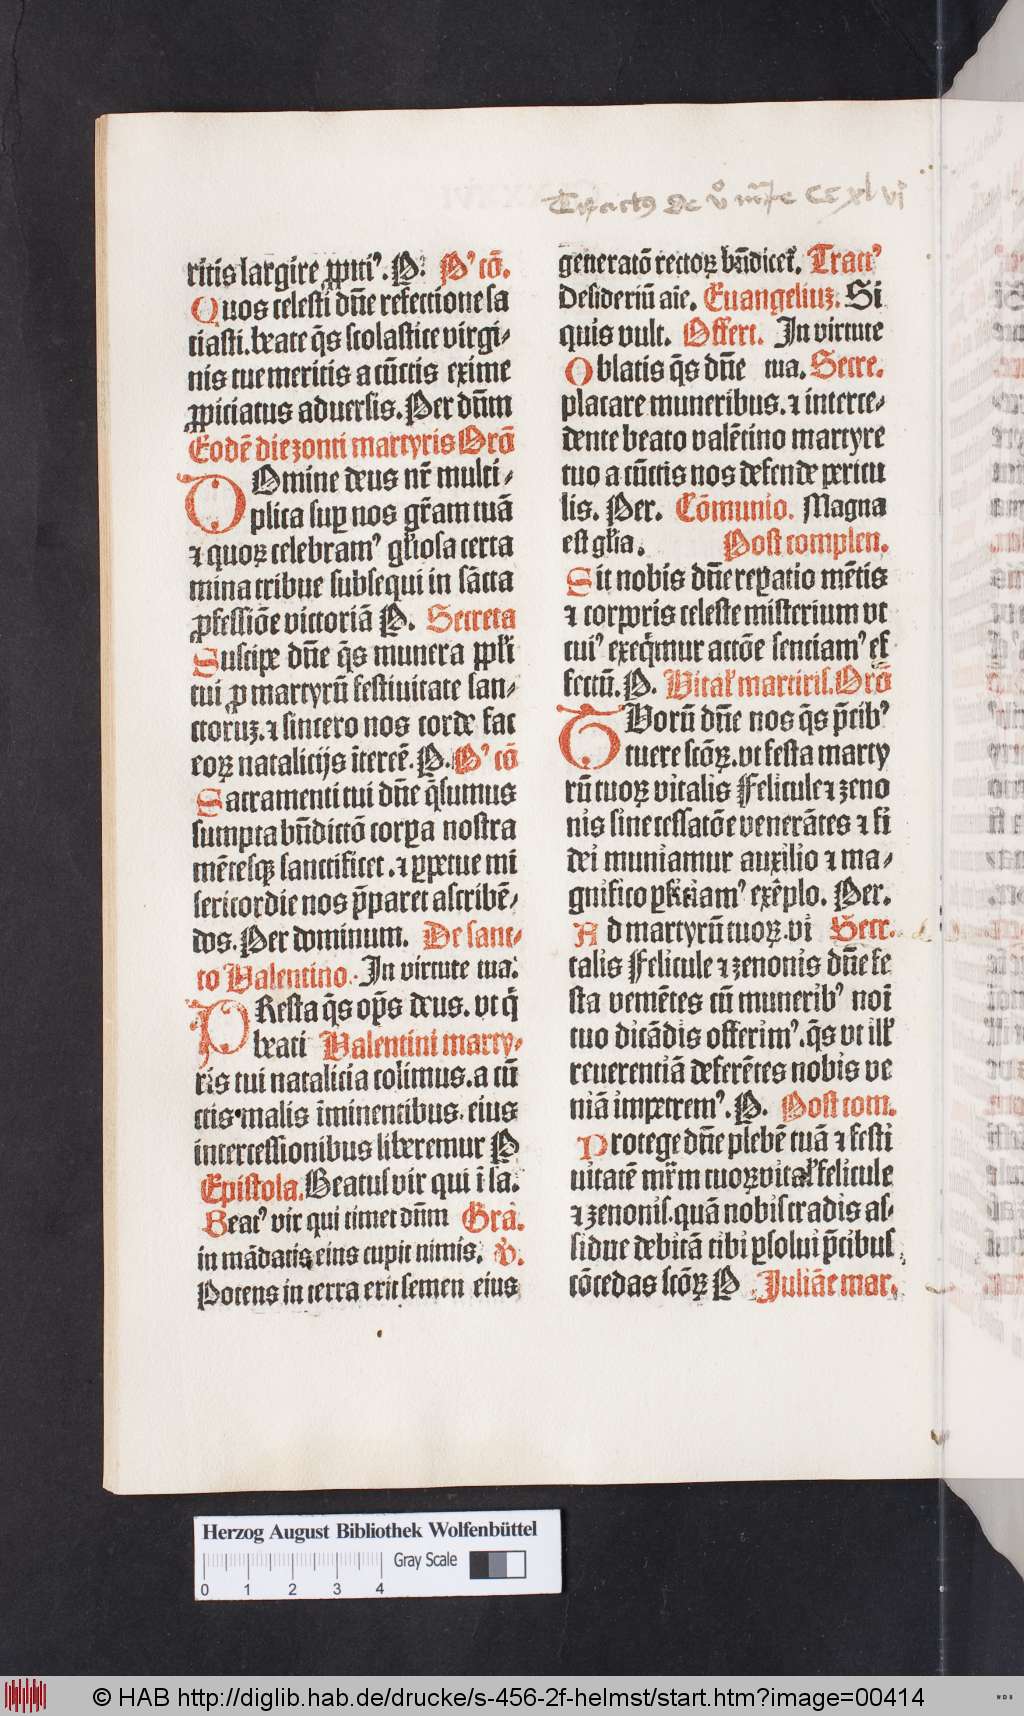 Tractus de v° m̄re CCxlvi
ritis largire ꝓpiti⁹. P. P⁹ cō.
Quos celesti dn̄e refectione sa
tiasti. beate q̄s scolastice virgi-
nis tue meritis a cūctis exime
ꝓpiciatus aduersis. Per dn̄m
Eodē die zonti martyris Orō
DOmine deus nr̄ multi-
plica suꝑ nos gr̄am tuā
⁊ quoꝝ celebram⁹ gl̄iosa certa
mina tribue subsequi in sācta
ꝓfessiōe victoriā P. Secreta
Suscipe dn̄e q̄s munera ppl̄i
tui ꝓ martyrū festiuitate san-
ctoruꝫ. ⁊ sincero nos corde fac
eoꝝ natalicijs īterceē. P. P⁹ cō
Sacramenti tui dn̄e q̄sumus
sumpta bn̄dictō corꝑa nostra
mētesqꝫ sanctificet. ⁊ ꝑpetue mi
sericordie nos p̄paret ascribē-
dos. Per dominum. De sanc-
to Valentino. In virtute tua.
PResta q̄s op̄s deus. vt q̄
beati Valentini marty-
ris tui natalicia colimus. a cū
ctis malis īminentibus. eius
intercessionibus liberemur P
Epistola. Beatus vir qui ī la.
Beat⁹ vir qui timet dn̄m Gra.
in mādatis eius cupit nimis. V.
Potens in terra erit semen eius
generatō rectoꝝ bn̄dicet̄. Tract⁹
Desideriū aie. Euangeliuꝫ. Si
quis vult. Offert. In virtute
Oblatis q̄s dn̄e tua. Secre.
placare muneribus. ⁊ interce-
dente beato valētino martyre
tuo a cūctis nos defende pericu
lis. Per. Cōmunio. Magna
est gl̄ia. Post complen.
Sit nobis dn̄e reꝑatio mētis
⁊ corporis celeste misterium vt
cui⁹ exeq̄mur actōe senciam⁹ ef
fectū. P. Vital̄ martiris. Orō
THorū dn̄e nos q̄s p̄cib⁹
tuere scōꝝ. vt festa marty
rū tuoꝝ vitalis Felicule ⁊ zeno
nis sine cessatōe venerātes ⁊ fi
dei muniamur auxilio ⁊ ma-
gnifico ꝑficiam⁹ exēplo. Per.
Ad martyrū tuoꝝ. vi Secr.
talis Felicule ⁊ zenonis dn̄e fe
sta vemētes cū munerib⁹ noī
tuo dicādis offerim⁹. q̄s vt ill̄
reuerentiā deferētes nobis ve
niā impetrem⁹. P. Post com.
Protege dn̄e plebē tuā ⁊ festi
uitatē mr̄m tuoꝝ vital̄ felicule
⁊ zenonis. quā nobis tradis as-
sidue debitā tibi ꝑsolui p̄cibus
cōcedas scōꝝ P Juliāe mar.
Herzog August Bibliothek Wolfenbüttel
Gray Scale
0 1 2 3 4
© HAB http://diglib.hab.de/drucke/s-456-2f-helmst/start.htm?image=00414